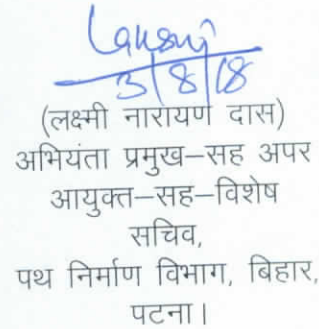 Laxmi
3/8/18
(लक्ष्मी नारायण दास)
अभियंता प्रमुख–सह अपर
आयुक्त–सह–विशेष
सचिव,
पथ निर्माण विभाग, बिहार,
पटना।